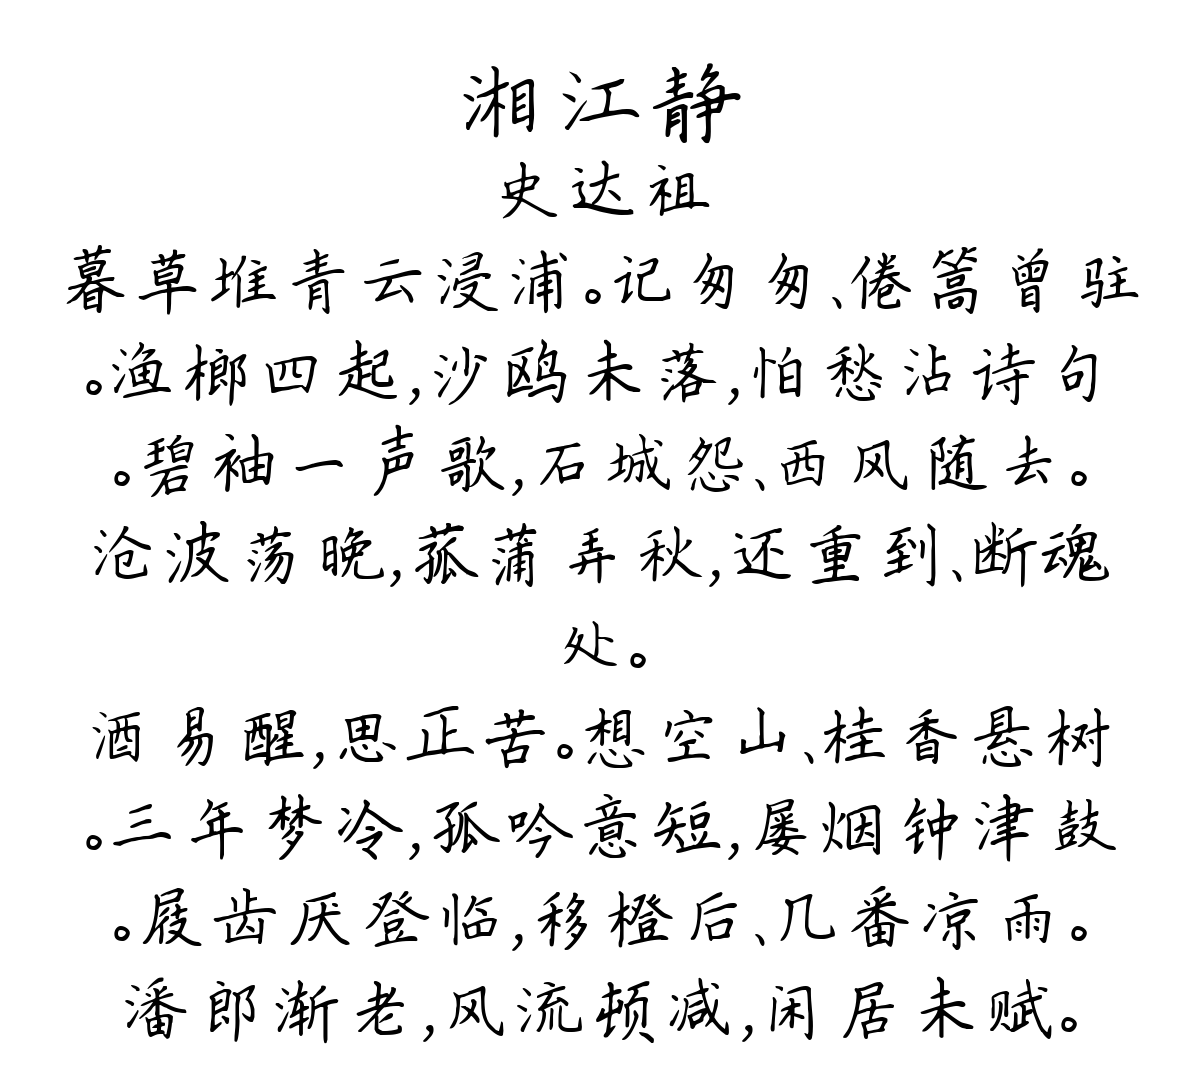 湘江静
史达祖
暮草堆青云浸浦。记匆匆、倦篙曾驻
。渔榔四起,沙鸥未落,怕愁沾诗句
。碧袖一声歌,石城怨、西风随去。
沧波荡晚,菰蒲弄秋,还重到、断魂
处。
酒易醒,思正苦。想空山、桂香悬树
。三年梦冷,孤吟意短,屡烟钟津鼓
。屐齿厌登临,移橙后、几番凉雨。
潘郎渐老,风流顿减,闲居未赋。